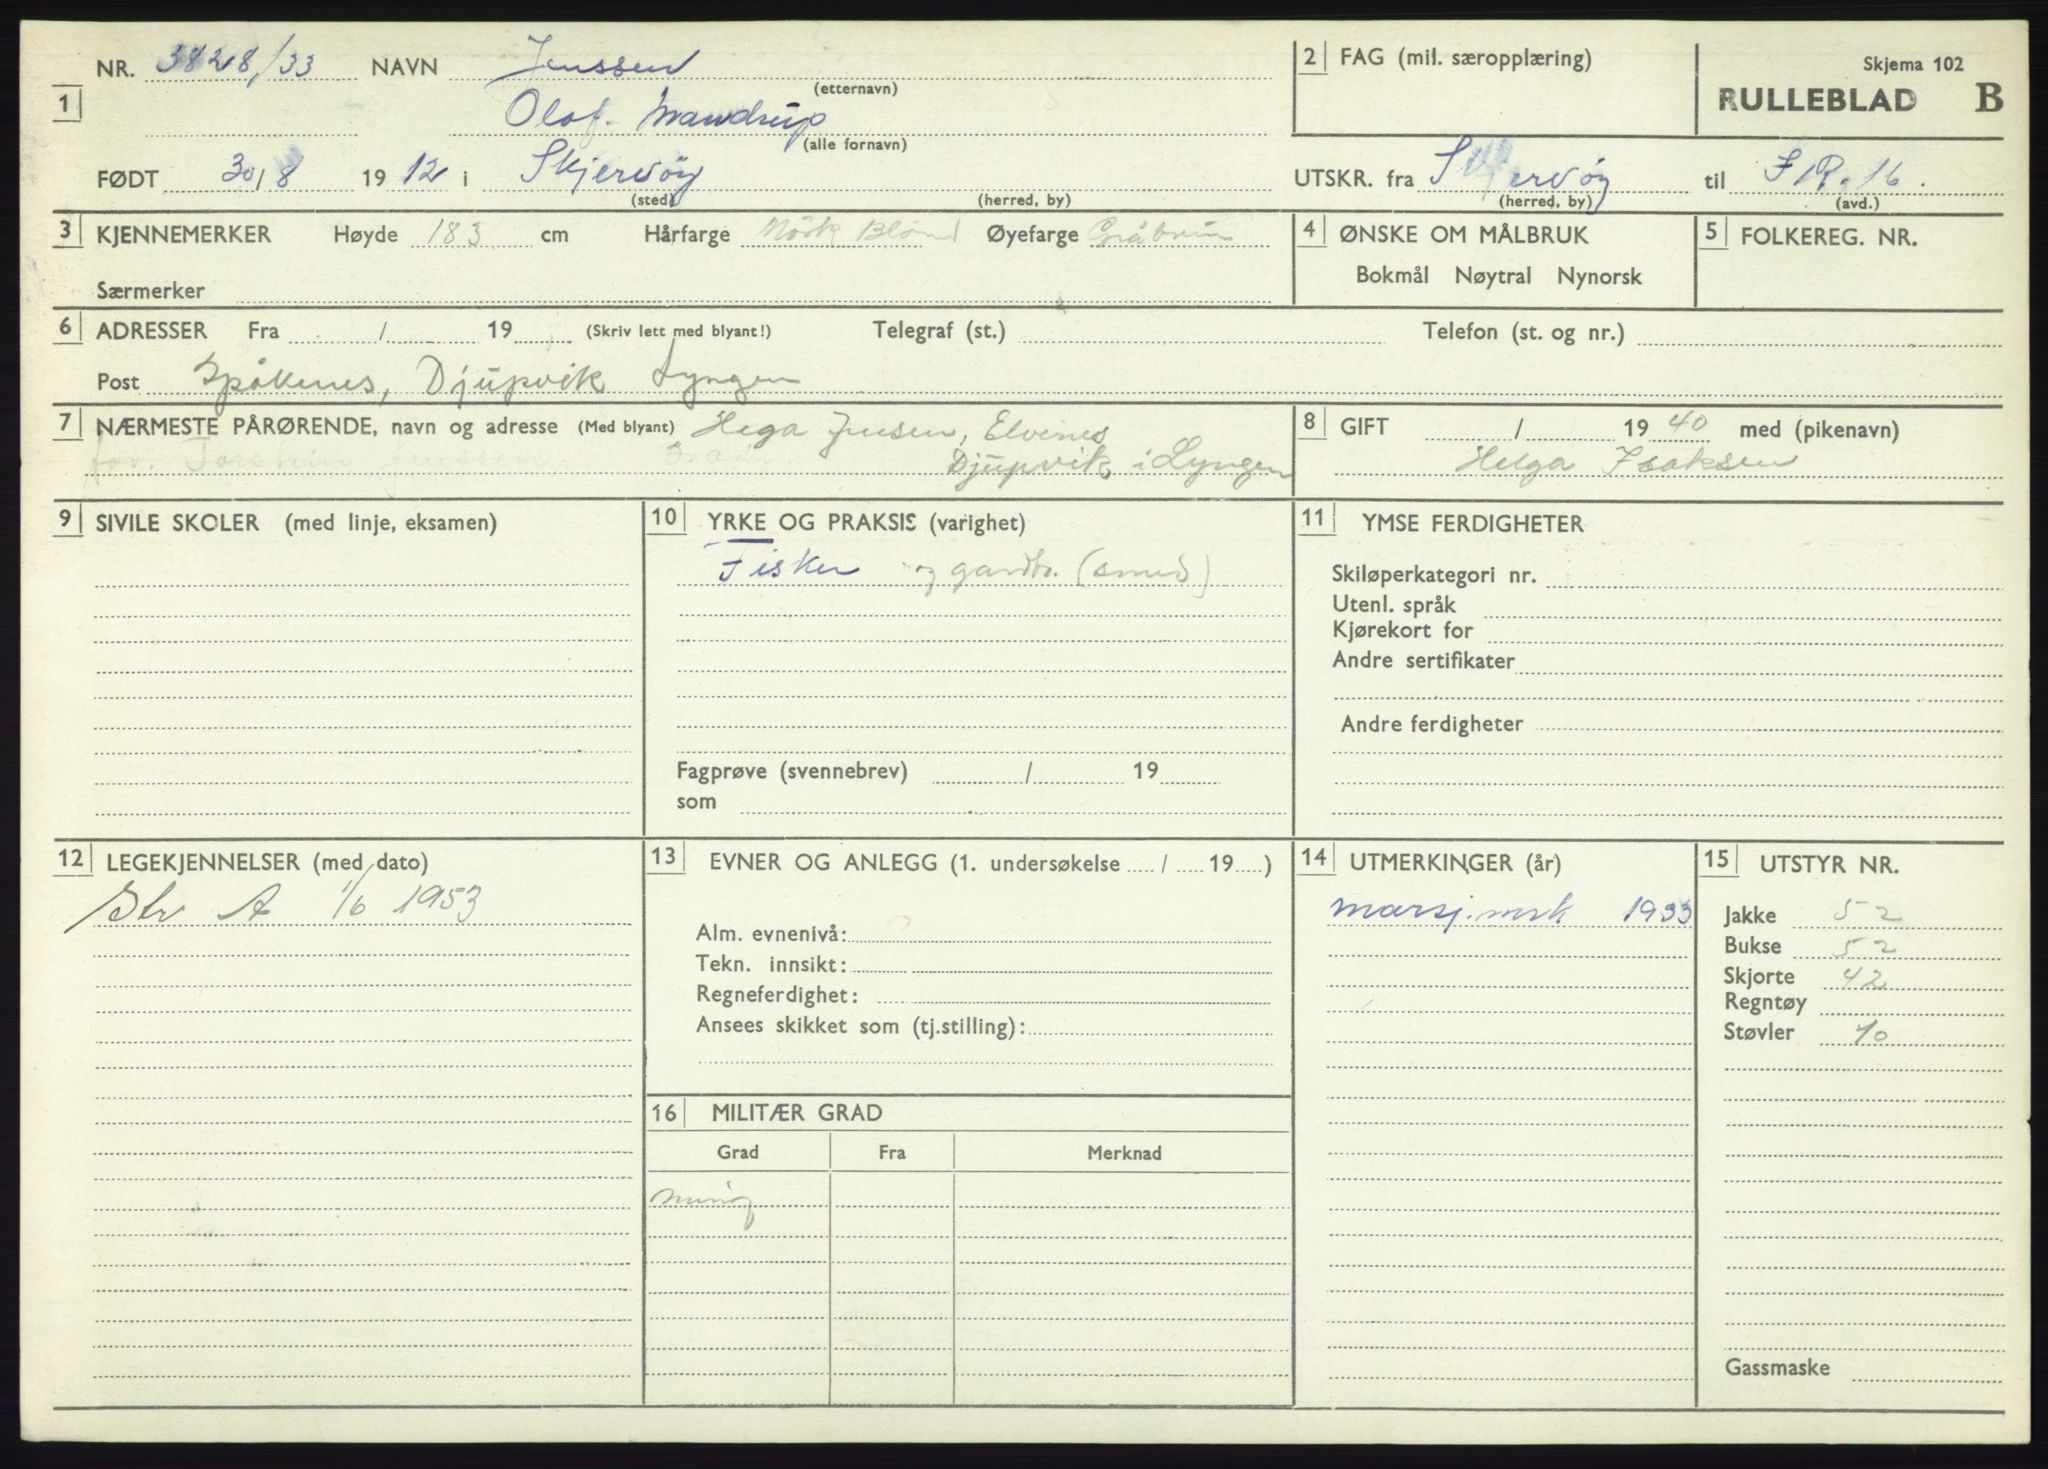 1 NR. 3828/33 NAVN Jenssen
(etternavn)
Olaf Mandrup
(alle fornavn)
FØDT 30/8 1912 i Skjervöy
(sted) (herred, by)
2 FAG (mil. særopplæring)
Skjema 102
RULLEBLAD B
UTSKR. fra Skjervöy til I.R. 16.
(herred, by) (avd.)
3 KJENNEMERKER Høyde 183 cm Hårfarge Mörk Blond Øyefarge Gråbrun
Særmerker
4 ØNSKE OM MÅLBRUK
Bokmål Nøytral Nynorsk
5 FOLKEREG. NR.
6 ADRESSER Fra / 19 (Skriv lett med blyant!) Telegraf (st.) Telefon (st. og nr.)
Post Spåkenes, Djupvik Lyngen
7 NÆRMESTE PÅRØRENDE, navn og adresse (Med blyant) Hega Jensen, Elvenes
Djupvik i Lyngen
far. Torstein Jenssen
8 GIFT / 1940 med (pikenavn)
Helga Isaksen
9 SIVILE SKOLER (med linje, eksamen)
10 YRKE OG PRAKSIS (varighet)
Fisker og gardbr. (smed)
Fagprøve (svennebrev) / 19
som
11 YMSE FERDIGHETER
Skiløperkategori nr.
Utenl. språk
Kjørekort for
Andre sertifikater
Andre ferdigheter
12 LEGEKJENNELSER (med dato)
Str A 1/6 1953
13 EVNER OG ANLEGG (1. undersøkelse / 19 )
Alm. evnenivå:
Tekn. innsikt:
Regneferdighet:
Ansees skikket som (tj.stilling):
16 MILITÆR GRAD
Grad Fra Merknad
menig
14 UTMERKINGER (år)
marsj.merk 1933
15 UTSTYR NR.
Jakke 52
Bukse 52
Skjorte 42
Regntøy
Støvler 40
Gassmaske